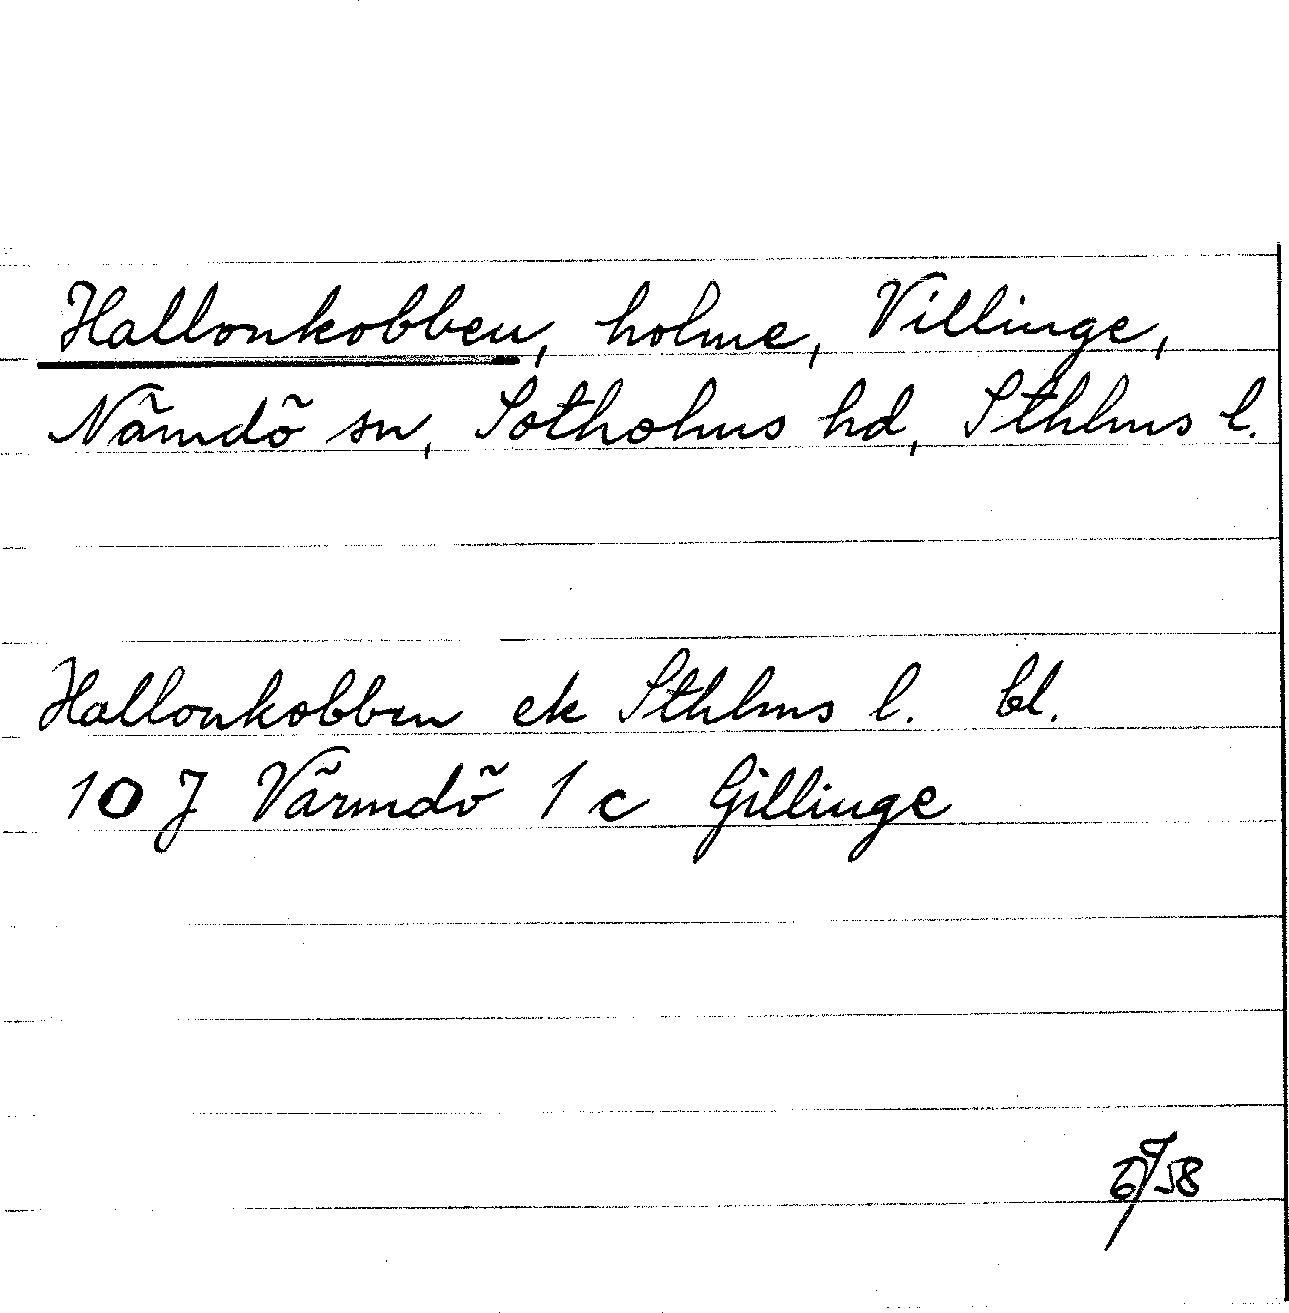 Hallonkobben, holme, Villinge,
Nämdö sn, Sotholms hd, Sthlms l.
Hallonkobben ek Sthlms l. bl.
10 J Värmdö 1 c Gillinge
58